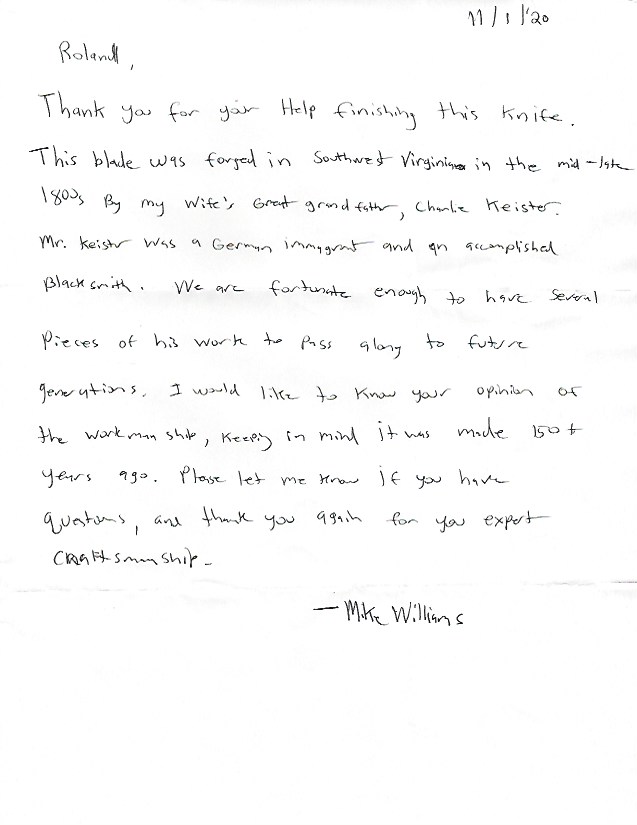 11/1/'20
Roland,
Thank you for your Help finishing this Knife.
This blade was forged in Southwest Virginia in the mid-late
1800s By my Wife's Great grandfather, Charlie Keister.
Mr. Keistr was a German immagrant and an accomplished
Blacksmith. We are fortunate enough to have several
Pieces of his work to Pass along to future
generations. I would like to Know your opinion of
the workmanship, Keeping in mind it was made 150+
years ago. Please let me Know if you have
questions, and thank you again for you expert
CRAFtsmanship.
- Mike Williams